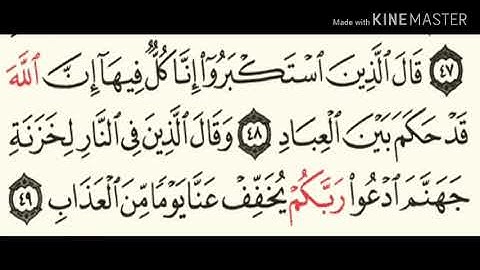 Made with KINEMASTER
﴿٤٧﴾ قَالَ الَّذِينَ اسْتَكْبَرُوٓا۟ إِنَّا كُلٌّ فِيهَآ إِنَّ اللَّهَ
قَدْ حَكَمَ بَيْنَ الْعِبَادِ ﴿٤٨﴾ وَقَالَ الَّذِينَ فِي النَّارِ لِخَزَنَةِ
جَهَنَّمَ ادْعُوا۟ رَبَّكُمْ يُخَفِّفْ عَنَّا يَوْمًا مِّنَ الْعَذَابِ ﴿٤٩﴾